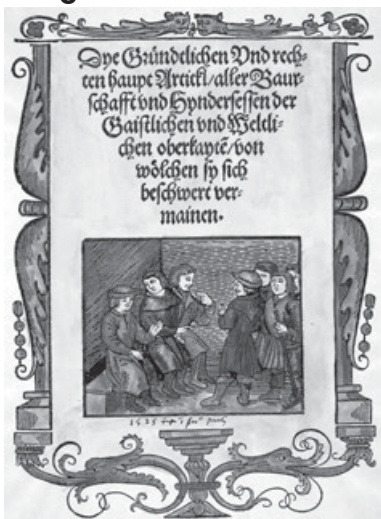 Dye Gründtlichen Vnd rech-
ten haupt Artickl/aller Baur-
schafft vnd Hyndersessen der
Gaistlichen vnd Weltli-
chen oberkaytē/von
wölchen sy sich
beschwert ver-
mainen.
1525